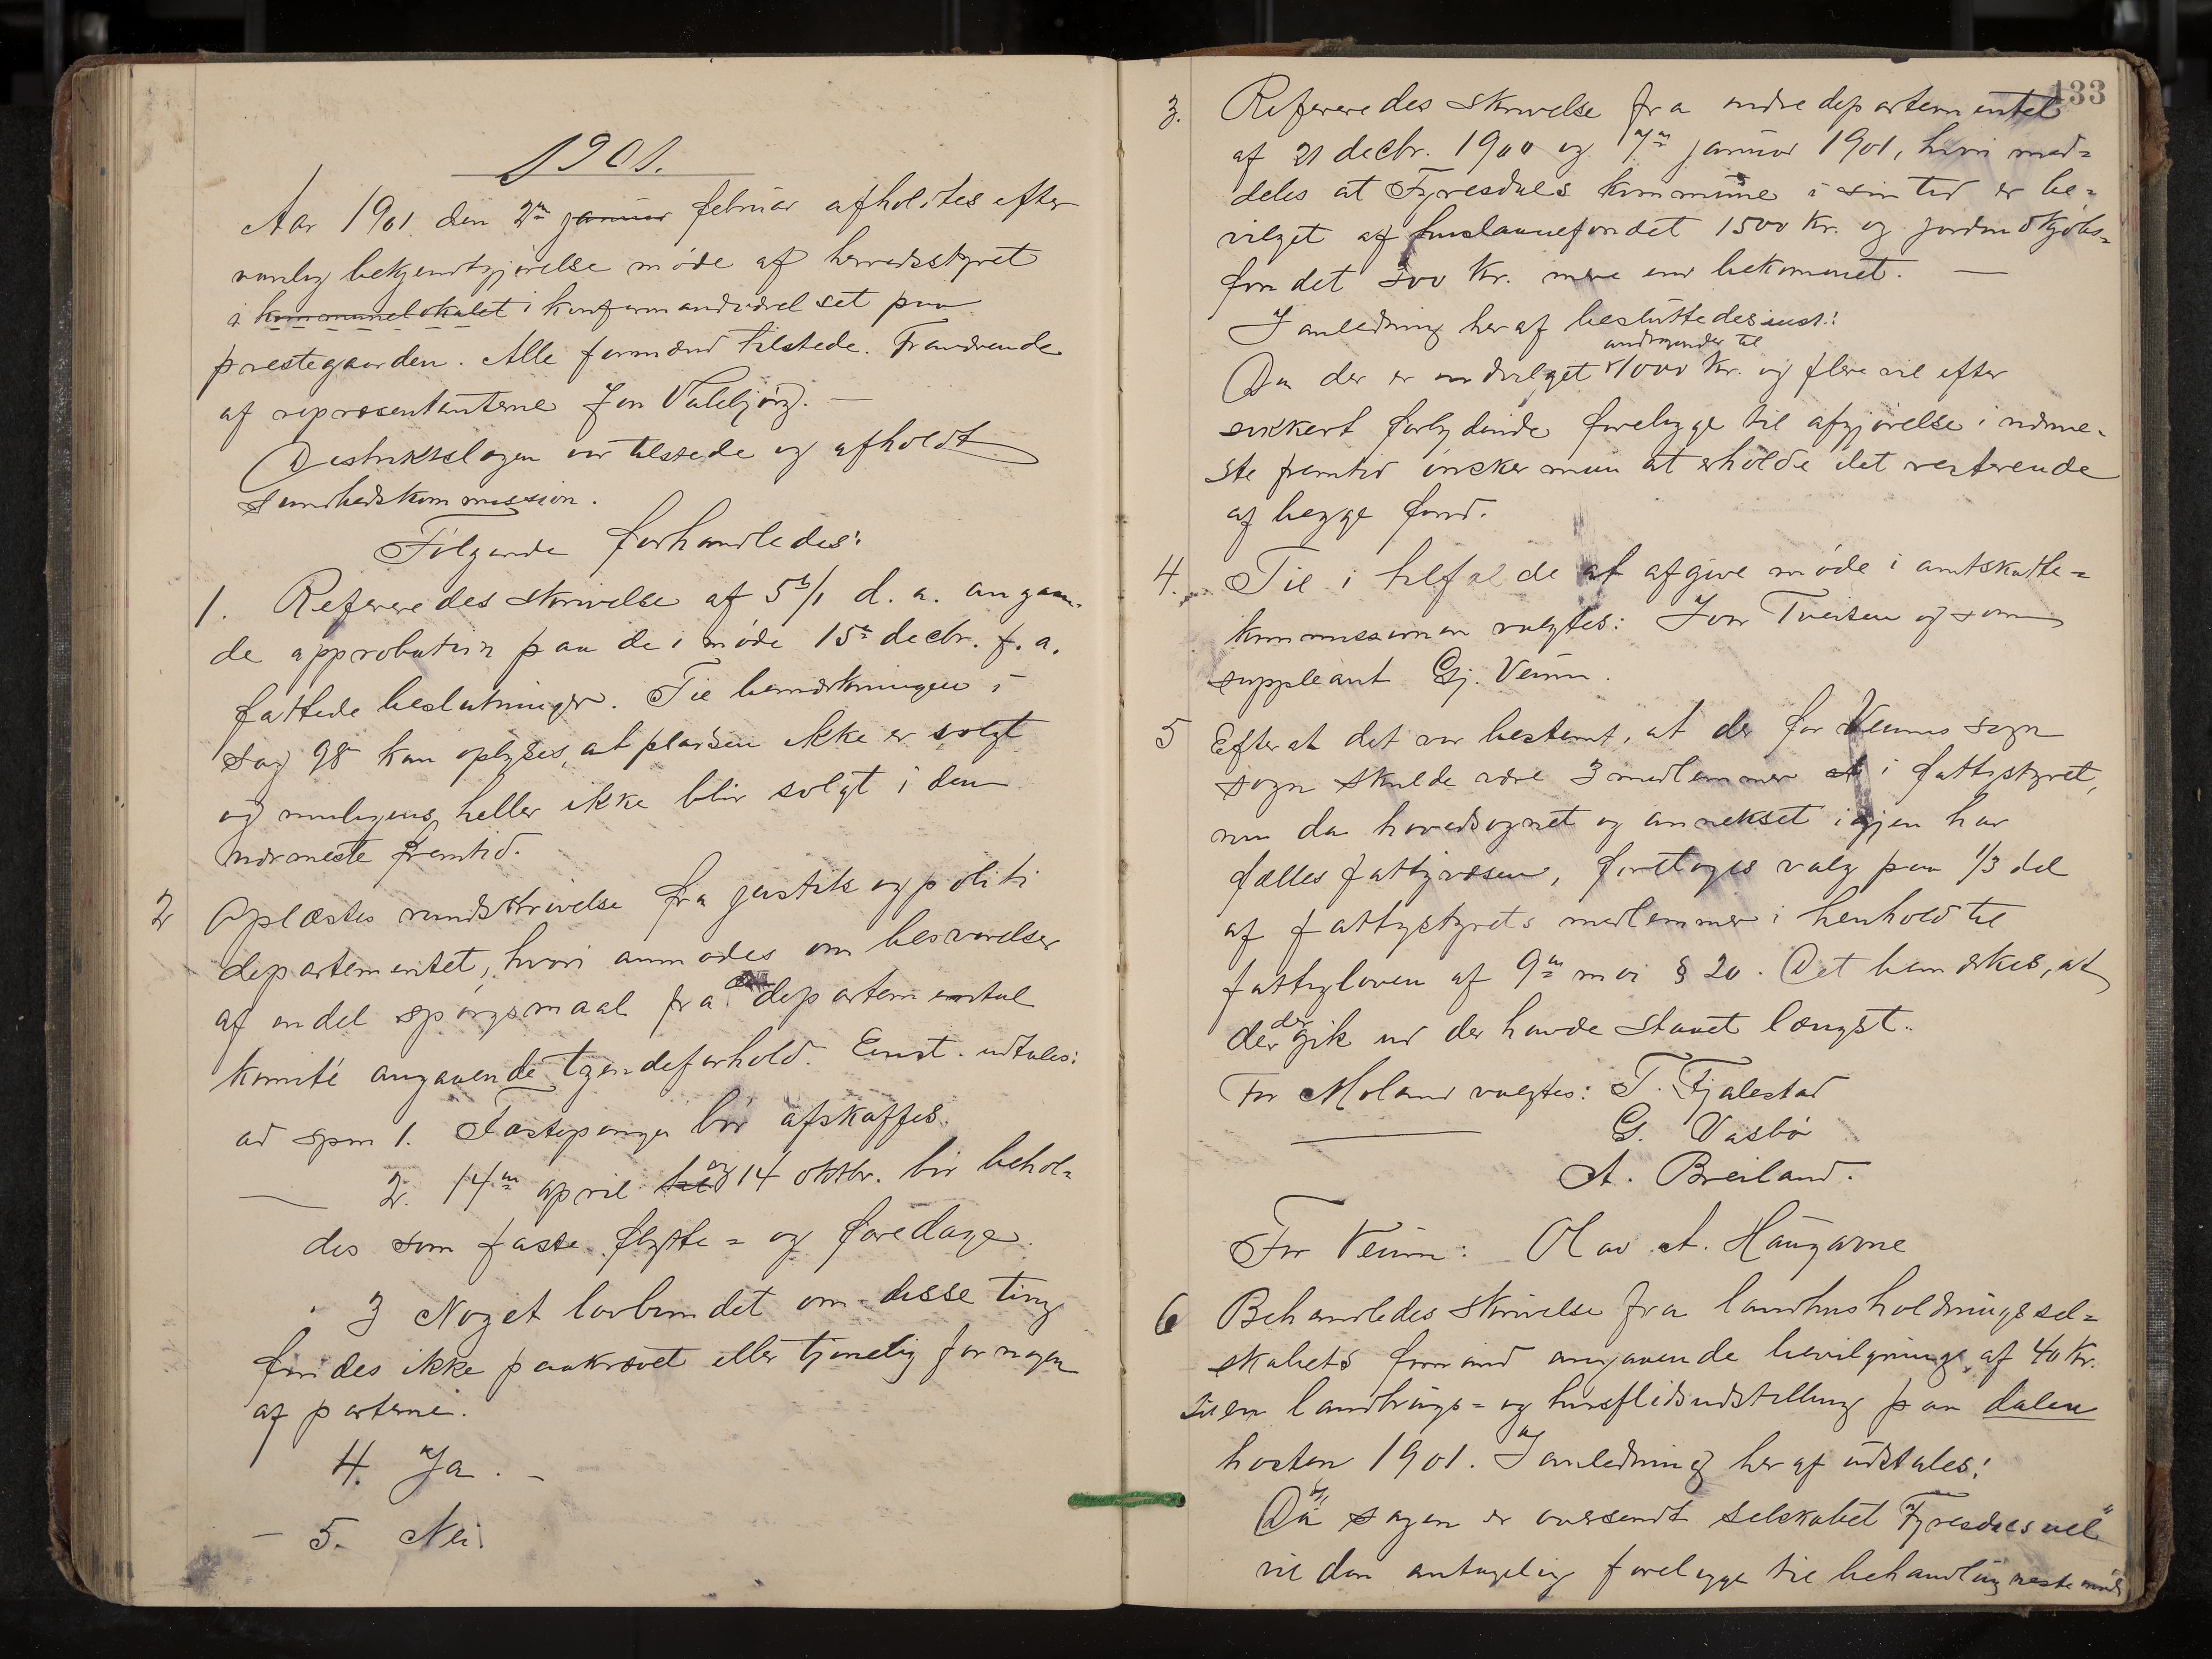 1901.
Aar 1901 den 2den januar februar afholdtes efter
vanlig bekjendtgjørelse møde af herredsstyret
i kommunelokalet i konfirmandværelset paa
prestegaarden. Alle formænd tilstede. Fraværende
af repræsentanterne Jon Valebjørg. —
Distriktslægen var tilstede og afholdt
sundhedskommission.
Følgende forhandledes:
1. Refereredes skrivelse af 5te/1 d. a. angaaen-
de approbation paa de i møde 15de decbr. f. a.
fattede beslutninger. Til bemærkningen i
sag 98 kan oplyses, at pladsen ikke er solgt
og muligens heller ikke blir solgt i den
nærmeste fremtid.
2 Oplæstes rundskrivelse fra justits og politi
departementet, hvori anmodes om besvarelser
af endel spørgsmaal fra departemental
komité angaaende tyendeforhold. Eenst. udtales:
ad spm 1. Fæstepenge bør afskaffes.
— 2. 14de april til og 14 oktbr. bør behol=
des som faste flytte= og faredage.
3 Noget lovbundet om disse ting
findes ikke paakrævet eller tjenelig for nogen
af parterne.
4. Ja. —
— 5. Nei.
133
3. Refereredes skrivelse fra indredepartementet
af 21 decbr. 1900 og 17de januar 1901, hvori med=
deles at Fyresdals kommune i sin tid er be=
vilget af huslaanefondet 1500 Kr. og jordindkjøbs=
fondet 300 Kr. mere end bekommet. —
I anledning heraf besluttedes enst.:
andragender til
Da der er indvilget 1000 Kr. og flere vil efter
sikkert forlydende foreligge til afgjørelse i nærme-
ste fremtid ønsker man at erholde det resterende
af begge fond.
4. Til i tilfælde at afgive møde i amtskatte=
kommissionen valgtes: Jon Tveiten og som
suppleant Gj. Veum.
5 Efter at det var bestemt, at der for Veums sogn
sogn skulde være 3 medlemmer af i fattigstyret,
nu da hovedsognet og annekset igjen har
fælles fattigvæsen, foretoges valg paa 1/3 del
af fattigstyrets medlemmer i henhold til
fattigloven af 9de mai § 20. Det bemærkes, at
der
der gik ud der havde staaet længst.
For Moland valgtes: T. Fjalestad
G. Vasbø
A. Breiland.
For Veum: Olav A. Haugarne
6 Behandledes skrivelse fra landhusholdningssel=
skabets formand angaaende bevilgning af 40 Kr.
til en landbrugs= og husflidsudstilling paa dalen
høsten 1901. I anledning heraf udtales:
Da sagen er oversendt selskabet "Fyresdals vel"
vil den antagelig foreligge til behandling næste møde